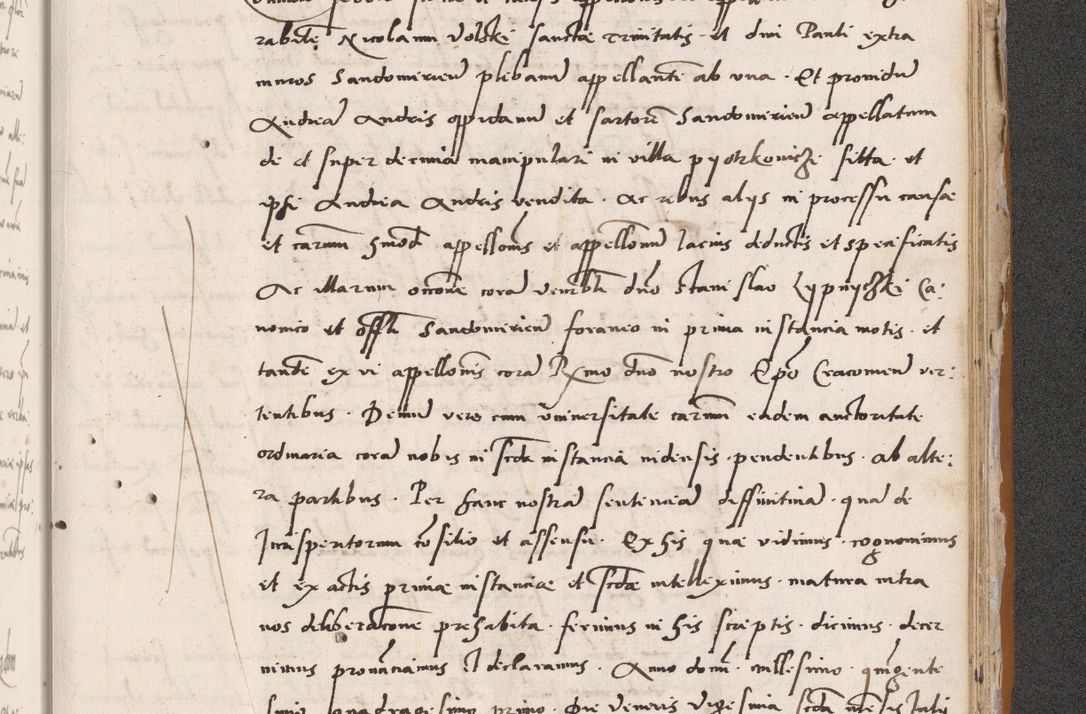 rabilem Nicolaum Volski sanctae Trinitatis et divi Pauli extra
muros Sandomirien plebanum appellantem ab una. Et providum
Andream Andris oppidanum et sartorem Sandomirien appellatum
de et super decima manipulari in villa pyotrkovicze sitta et
ipsi Andrea Andris vendita. Ac rebus alijs in processu causae
et carum hmodi appellonis et appellonum latius deductis et specificatis
Ac illarum occone corā venrbli dno Stanislao Lypnyczki Ca:
nonico et offli Sandomirien foraneo in prima instancia motis. et
tandē ex vi appellonis corā Rmo dno nostro Epo Cracovien ver:
tentibus. Demū vero cum universitate carum eadem auctoritate
ordinaria corā nobis in scda instancia indensis. pendentibus. ab alte:
ra partibus. Per hanc nostrā sentenciā diffinitivā. quā de
Jurisperitorum cōsilio et assensu. Ex his quae vidimus. cognovimus
et ex actis primae instanciae et scdae intelleximus. matura intra
nos deliberacone prehabita. ferimus in his scriptis. dicimus. decer
nimus pronunciamus Et declaramus. Anno domi. millesimo. quingente
simo quadragesimo primo. Die veneris Vigesima scda mensis Julij